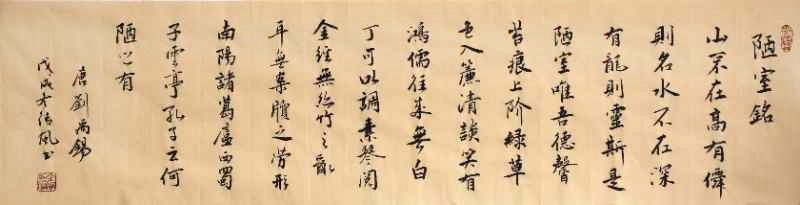 陋室銘
山不在高有僊
則名水不在深
有龍則靈斯是
陋室唯吾德馨
苔痕上阶緑草
色入簾清談笑有
鴻儒往来無白
丁可以調素琴阅
金經無絲竹之亂
耳無案牘之労形
南陽諸葛廬西蜀
子雲亭孔子云何
陋之有
唐劉禹錫
戊戌冬 風书